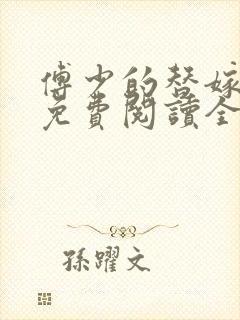 傅少的替嫁
免費閱讀全
孫躍文